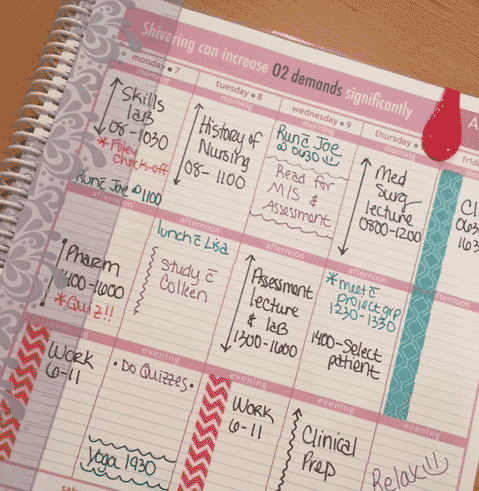 Shivering can increase O2 demands significantly
A
monday • 7
tuesday • 8
wednesday • 9
thursday •
frid
morning
Skills
lab
08-1030
* Foley
check-off
Run c̄ Joe @ 1100
morning
History of
Nursing
08-1100
morning
Run c̄ Joe
@ 0630
Read for
M/S &
Assessment
morning
Med
Surg
lecture
0800-1200
Cli
063
163
afternoon
Pharm
1400-1600
* Quiz!!
afternoon
lunch c̄ Lisa
Study c̄
Colleen
afternoon
Assessment
lecture
& lab
1300-1600
afternoon
* meet c̄
project grp
1230-1330
1400-Select
patient
afternoon
evening
Work
6-11
evening
• Do Quizzes •
yoga 1930
evening
Work
6-11
evening
Clinical
Prep
evening
Relax
satu